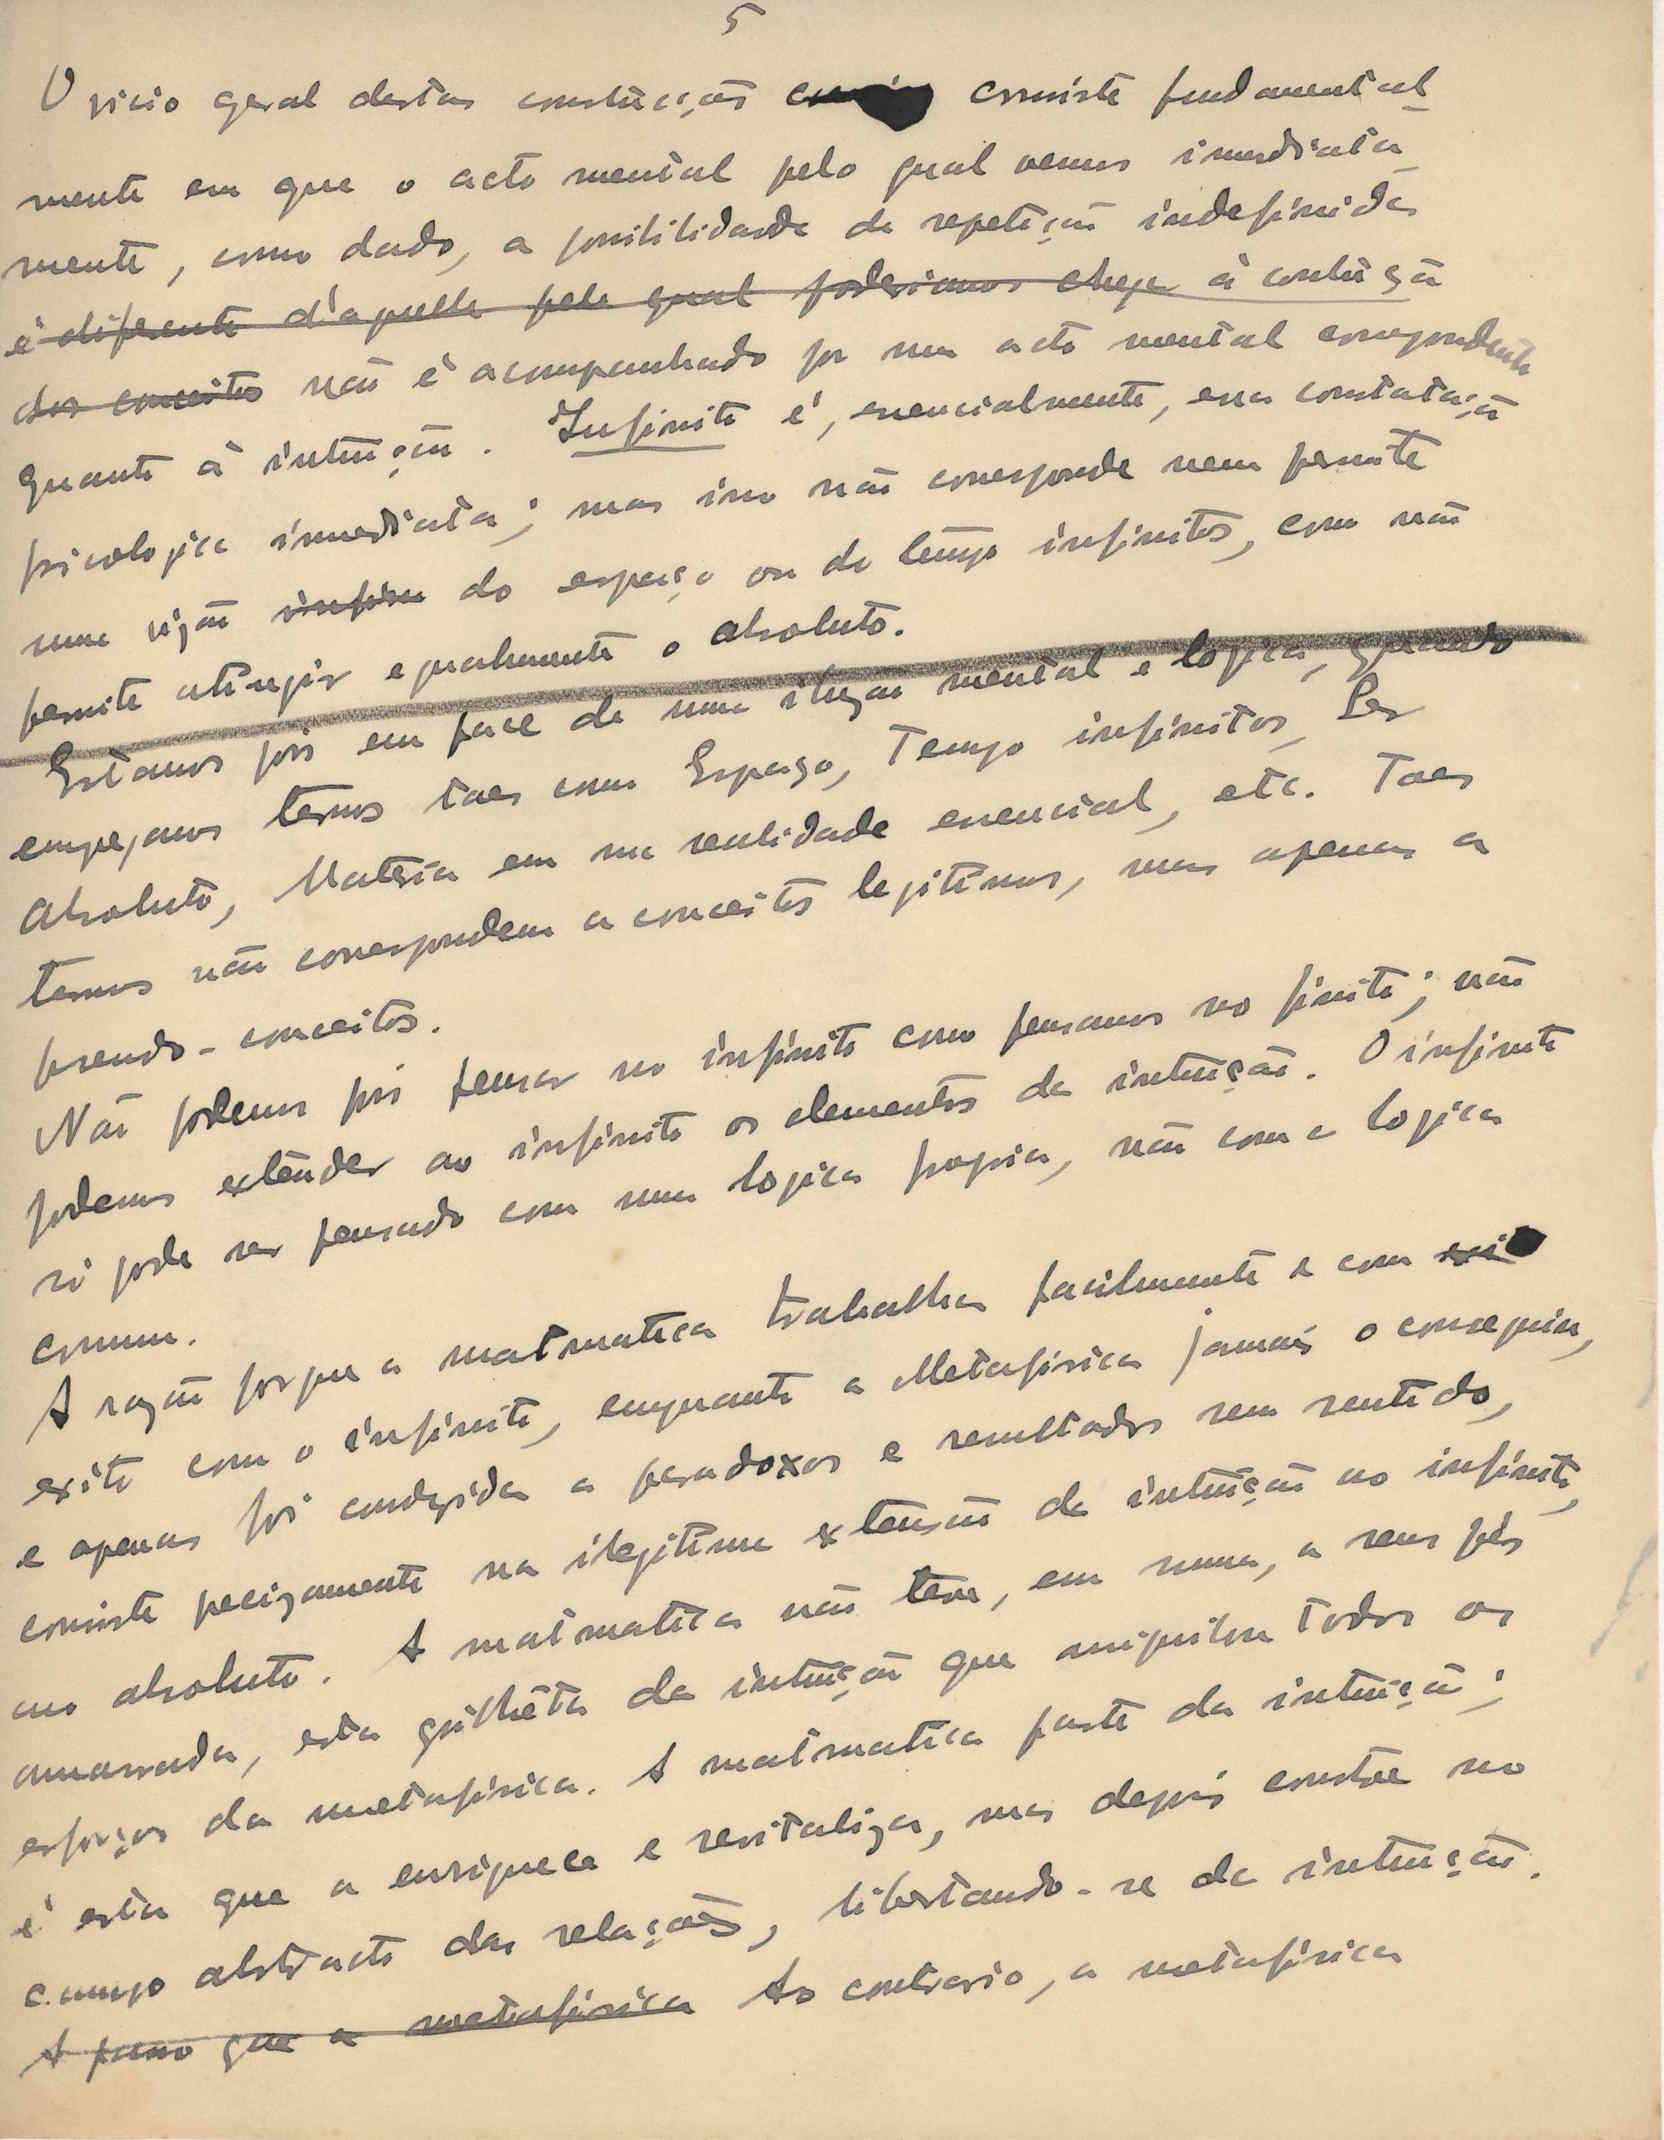 5
O vicio geral destas construcções consiste fundamental
mente em que o acto mental pelo qual vemos imediata
mente, como dado, a possibilidade de repetição indefinida
é diferente d'aquelle pelo qual poderiamos chegar à
dos conceitos não é acompanhado por um acto mental correspondente
quanto à intuição. Infinito é, essencialmente, essa constatação
psicologica imediata; mas isso não corresponde nem permite
uma vizão do espaço ou do tempo infinitos, como não
permite atingir egualmente o absoluto.
Estamos pois em face de uma mental e logica, quando
empregamos termos taes como Espaço, Tempo infinitos, Ser
Absoluto, Materia em sua realidade essencial, etc. Taes
termos não correspondem a conceitos legitimos, mas apenas a
pseudo-conceitos.
Não podemos pois pensar no infinito como pensamos no finito; não
podemos extender ao infinito os elementos da intuição. O infinito
só pode ser pensado com uma logica propria, não com a logica
comum.
A razão porque a matematica trabalha facilmente e com
exito com o infinito, emquanto a Metafisica jamais o conseguiu,
e apenas foi conduzida a paradoxos e resultados sem sentido,
consiste precizamente na ilegitima extensão da intuição ao infinito,
ao absoluto. A matematica não tem, em suma, a seus pés
amarrada, esta grilhêta da intuição que aniquilou todos os
esforços da metafisica. A matematica parte da intuição;
é esta que a enriquece e revitaliza, mas depois constroe no
campo abstracto das relações, libertando-se da intuição.
A passo que a metafisica Ao contrario, a metafisica